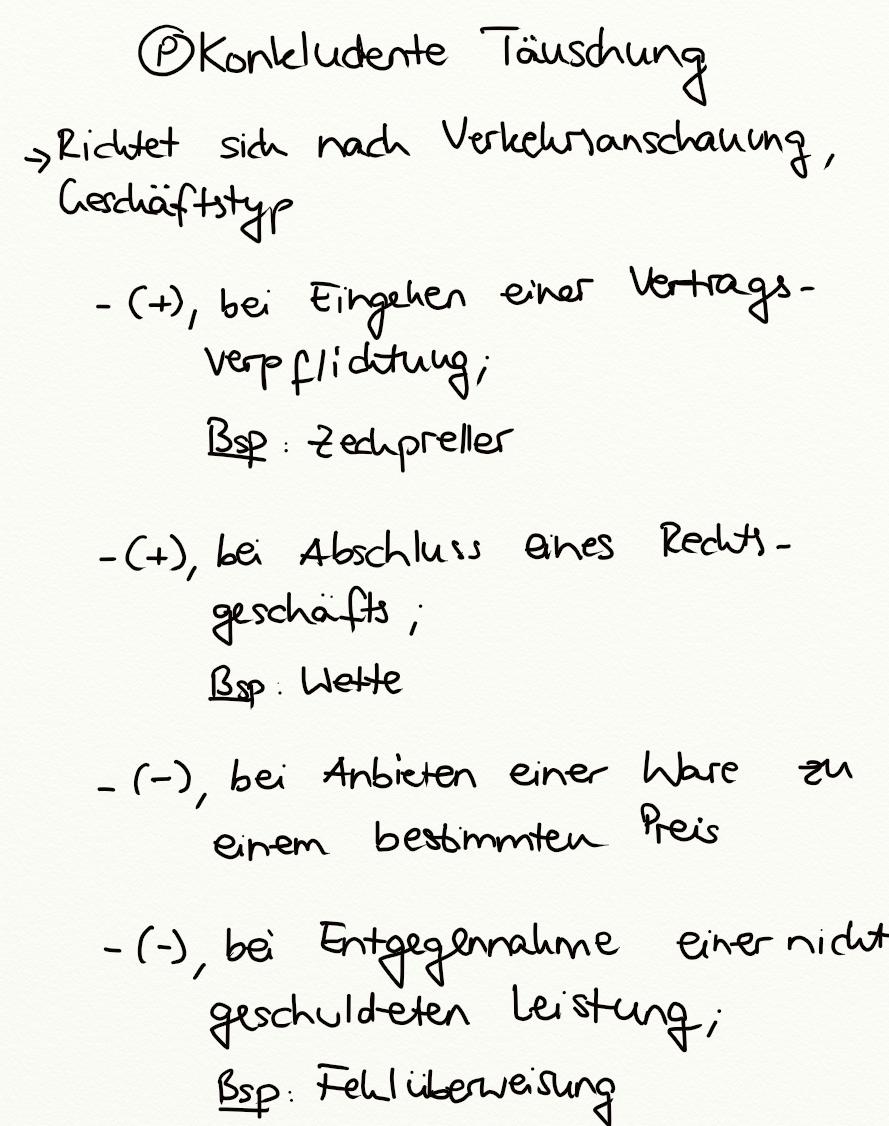 Ⓟ Konkludente Täuschung
→ Richtet sich nach Verkehrsanschauung,
Geschäftstyp
- (+), bei Eingehen einer Vertrags-
verpflichtung;
Bsp: Zechpreller
- (+), bei Abschluss eines Rechts-
geschäfts;
Bsp: Wette
- (-), bei Anbieten einer Ware zu
einem bestimmten Preis
- (-), bei Entgegennahme einer nicht
geschuldeten Leistung;
Bsp: Fehlüberweisung